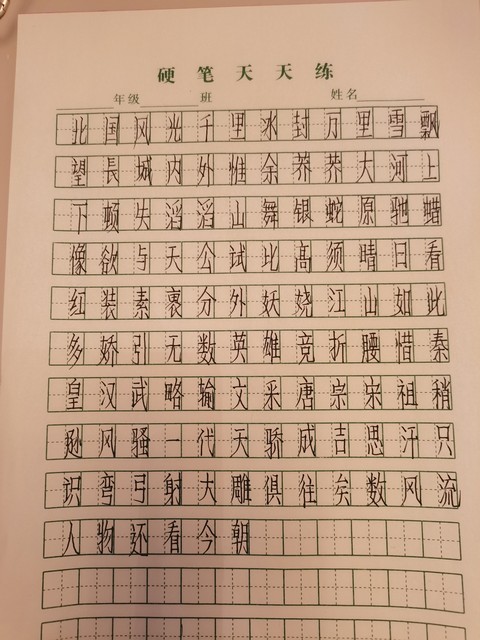 硬笔天天练
年级 班 姓名
北国风光千里冰封万里雪飘
望長城内外惟余莽莽大河上
下顿失滔滔山舞银蛇原驰蜡
像欲与天公试比高须晴日看
红装素裹分外妖娆江山如此
多娇引无数英雄竞折腰惜秦
皇汉武略输文采唐宗宋祖稍
逊风骚一代天骄成吉思汗只
识弯弓射大雕俱往矣数风流
人物还看今朝